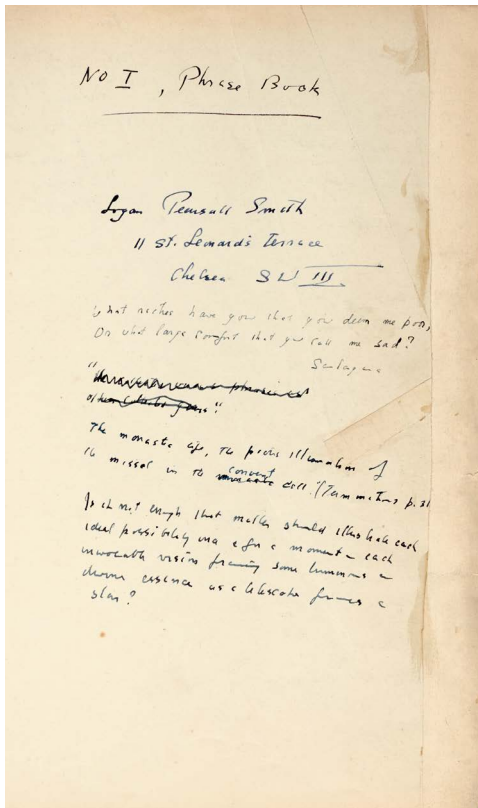 No I, Phrase Book
Logan Pearsall Smith
11 St. Leonard's Terrace
Chelsea SW III.
What riches have you that you deem me poor,
Or what large comfort that you call me sad?
Santayana
"
"
The monastic life, the pious illumination of
the missal in the convent cell." (
p. 31
Is it not enough that matter should illustrate each
ideal possibility once & for a moment - each
vision framing some luminous &
divine essence as a telescope frames a
star?